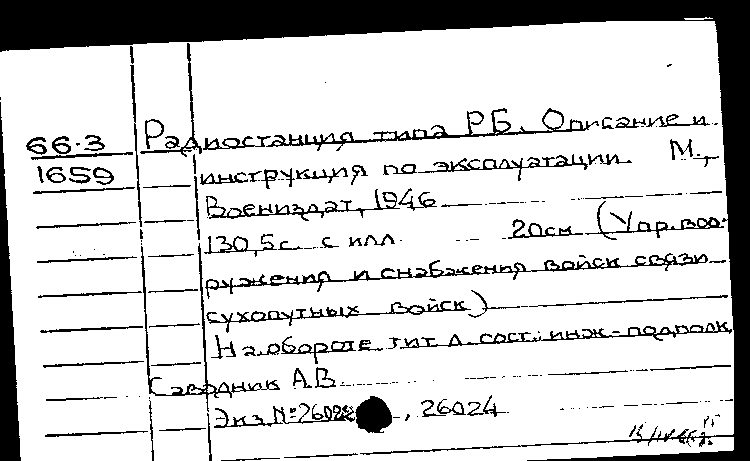 66.3
1659
Радиостанция типа РБ. Описание и
инструкция по эксплуатации. М.,
Воениздат, 1946
130,5с. с илл. 20см (Упр. воо-
ружения и снабжения войск связи
сухопутных войск)
На обороте тит. л. сост.: инж.-подполк.
Савродник А.В.
Экз. №26022, 26024